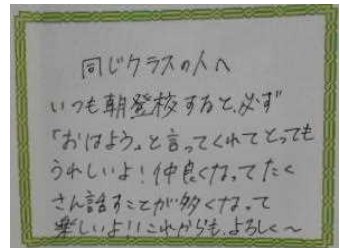 同じクラスの人へ
いつも朝登校すると、必ず
「おはよう」と言ってくれてとっても
うれしいよ!仲良くなってたく
さん話すことが多くなって
楽しいよ!!これからも、よろしく~